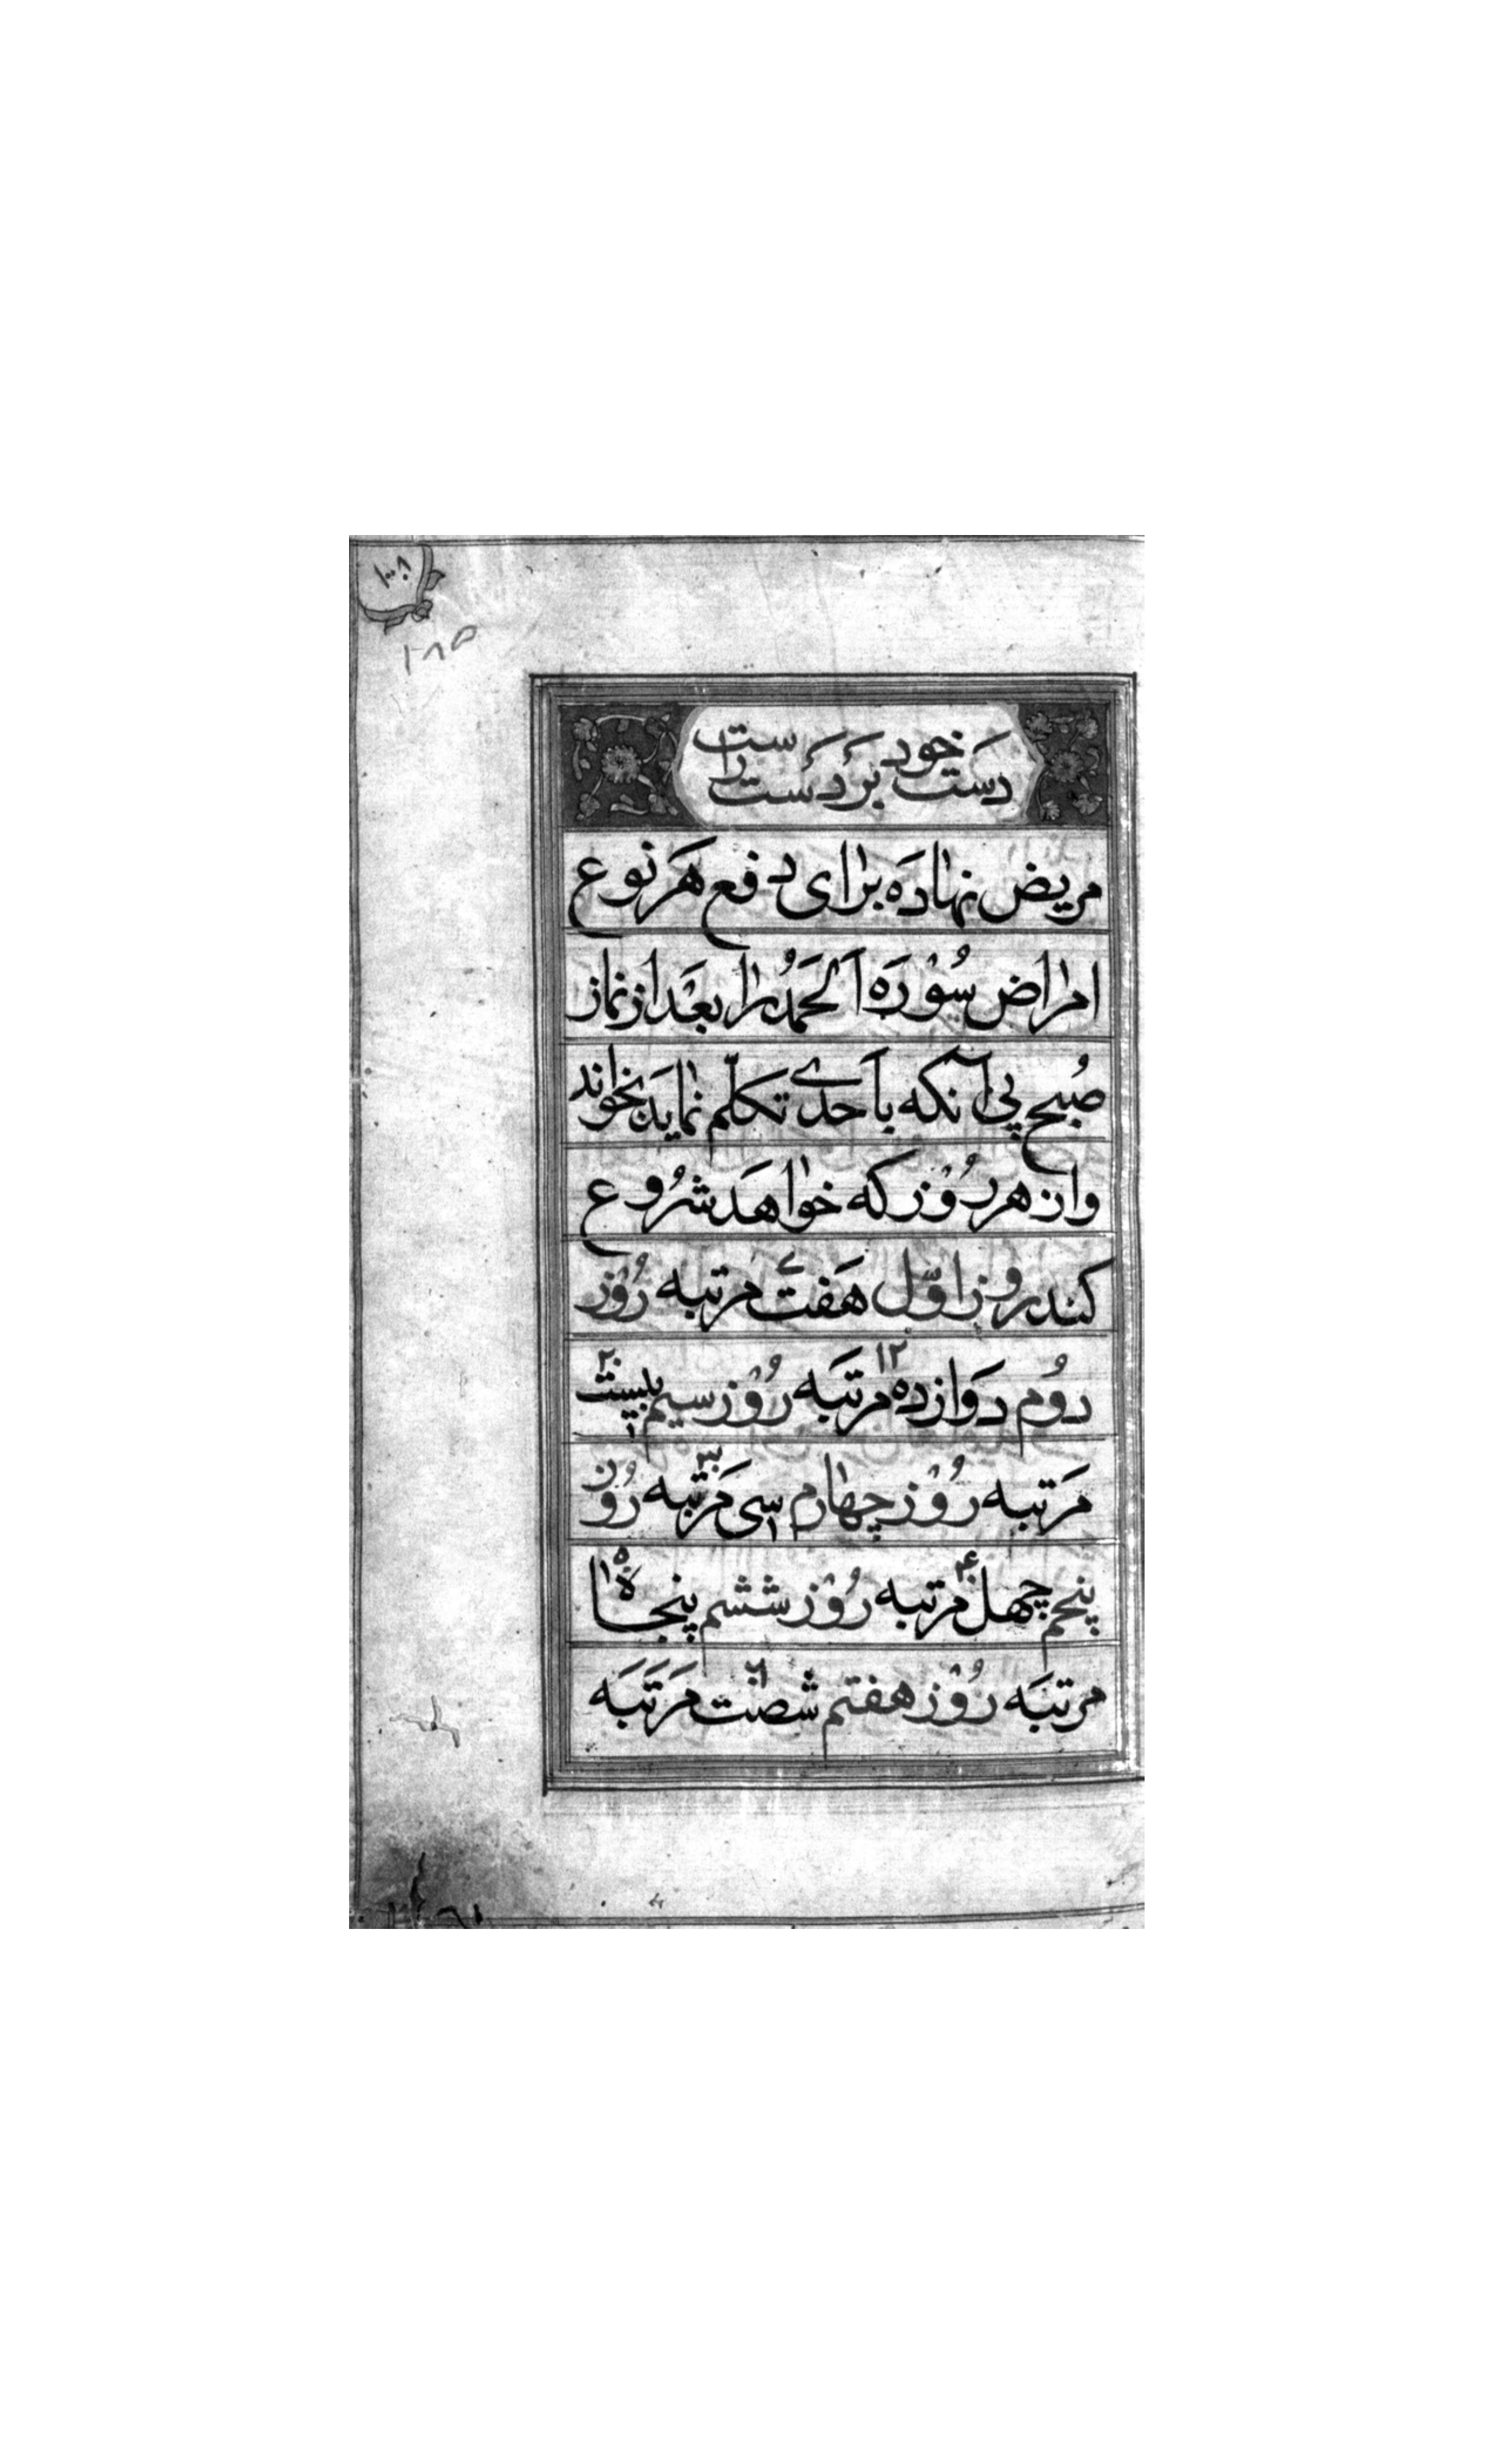 ۱۰۰۸
۱۸۵
دَست خود بَر دَست راست
مریض نهاده برای دفع هَر نوع
امراض سُوْرَه اَلحَمدُ را بعَد از نماز
صُبح پی آنکه باَحدے تکلّم نماید بخواند
و از هر رُوْز که خواهَد شرُوع
کند روز اوّل هَفت مرتبه رُوْز
دُوم دَوازده ۱۲ مرتَبَه رُوْز سیم بیست ۲۰
مَرتبه رُوْز چهارم سی ۳۰ مَرتَبه رُوْز
پنجم چهل ۴۰ مرتبه رُوْز ششم پنجاه ۵۰
مرتبَه رُوْز هفتم شصت ۶۰ مَرَتَبَه